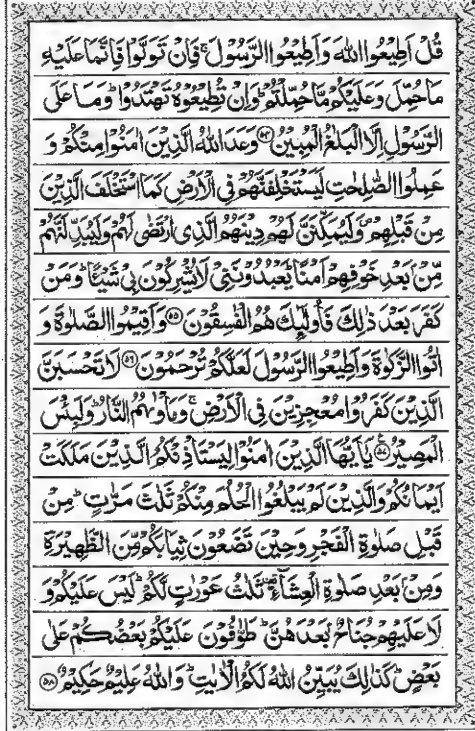 قُلْ اَطِیْعُوا اللّٰهَ وَ اَطِیْعُوا الرَّسُوْلَ ۚ فَاِنْ تَوَلَّوْا فَاِنَّمَا عَلَیْهِ
مَا حُمِّلَ وَ عَلَیْكُمْ مَّا حُمِّلْتُمْ ؕ وَ اِنْ تُطِیْعُوْهُ تَهْتَدُوْا ؕ وَ مَا عَلَی
الرَّسُوْلِ اِلَّا الْبَلٰغُ الْمُبِیْنُ ﴿۵۴﴾ وَعَدَ اللّٰهُ الَّذِیْنَ اٰمَنُوْا مِنْكُمْ وَ
عَمِلُوا الصّٰلِحٰتِ لَیَسْتَخْلِفَنَّهُمْ فِی الْاَرْضِ كَمَا اسْتَخْلَفَ الَّذِیْنَ
مِنْ قَبْلِهِمْ ۪ وَ لَیُمَكِّنَنَّ لَهُمْ دِیْنَهُمُ الَّذِی ارْتَضٰی لَهُمْ وَ لَیُبَدِّلَنَّهُمْ
مِّنْۢ بَعْدِ خَوْفِهِمْ اَمْنًا ؕ یَعْبُدُوْنَنِیْ لَا یُشْرِكُوْنَ بِیْ شَیْـًٔا ؕ وَ مَنْ
كَفَرَ بَعْدَ ذٰلِكَ فَاُولٰٓىِٕكَ هُمُ الْفٰسِقُوْنَ ﴿۵۵﴾ وَ اَقِیْمُوا الصَّلٰوةَ وَ
اٰتُوا الزَّكٰوةَ وَ اَطِیْعُوا الرَّسُوْلَ لَعَلَّكُمْ تُرْحَمُوْنَ ﴿۵۶﴾ لَا تَحْسَبَنَّ
الَّذِیْنَ كَفَرُوْا مُعْجِزِیْنَ فِی الْاَرْضِ ۚ وَ مَاْوٰىهُمُ النَّارُ ؕ وَ لَبِئْسَ
الْمَصِیْرُ ﴿۵۷﴾ یٰۤاَیُّهَا الَّذِیْنَ اٰمَنُوْا لِیَسْتَاْذِنْكُمُ الَّذِیْنَ مَلَكَتْ
اَیْمَانُكُمْ وَ الَّذِیْنَ لَمْ یَبْلُغُوا الْحُلُمَ مِنْكُمْ ثَلٰثَ مَرّٰتٍ ؕ مِنْ
قَبْلِ صَلٰوةِ الْفَجْرِ وَ حِیْنَ تَضَعُوْنَ ثِیَابَكُمْ مِّنَ الظَّهِیْرَةِ
وَ مِنْۢ بَعْدِ صَلٰوةِ الْعِشَآءِ ۫ؕ ثَلٰثُ عَوْرٰتٍ لَّكُمْ ؕ لَیْسَ عَلَیْكُمْ وَ
لَا عَلَیْهِمْ جُنَاحٌۢ بَعْدَهُنَّ ؕ طَوّٰفُوْنَ عَلَیْكُمْ بَعْضُكُمْ عَلٰی
بَعْضٍ ؕ كَذٰلِكَ یُبَیِّنُ اللّٰهُ لَكُمُ الْاٰیٰتِ ؕ وَ اللّٰهُ عَلِیْمٌ حَكِیْمٌ ﴿۵۸﴾